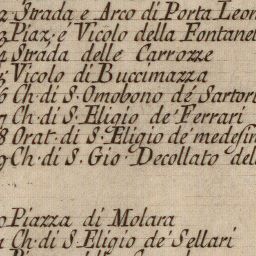 2 Strada e Arco di Porta Leon
3 Piaz. e Vicolo della Fontanel
4 Strada delle Carrozze
5 Vicolo di Buccimazza
6 Ch. di S. Omobono dé Sartori
7 Ch. di S. Eligio dé Ferrari
8 Orat. di S. Eligio dé medesim
9 Ch. di S. Gio. Decollato del
0 Piazza di Molara
1 Ch. di S. Eligio dé Sellari